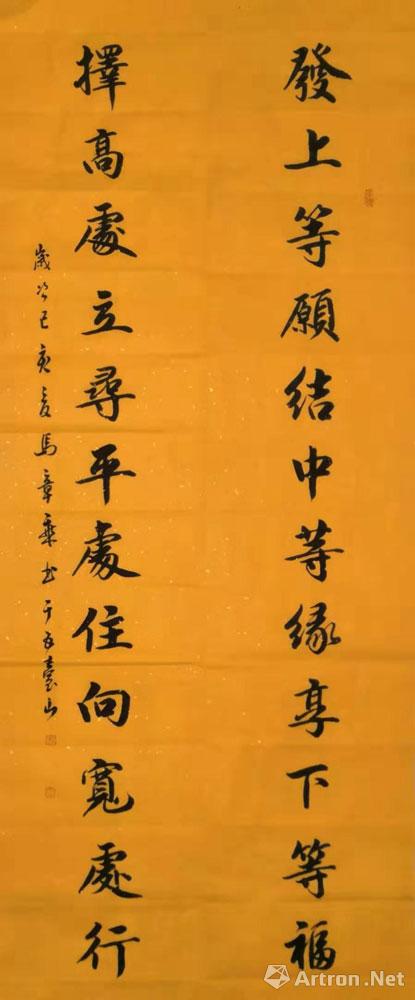 發上等願結中等緣享下等福
擇高處立尋平處住向寬處行
歲次己亥夏馬章乘書于五臺山
Artron.Net